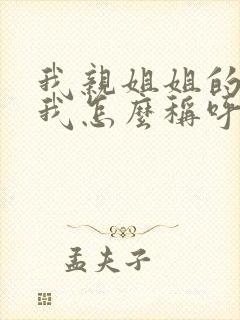 我親姐姐的
我怎麼稱呼
孟夫子